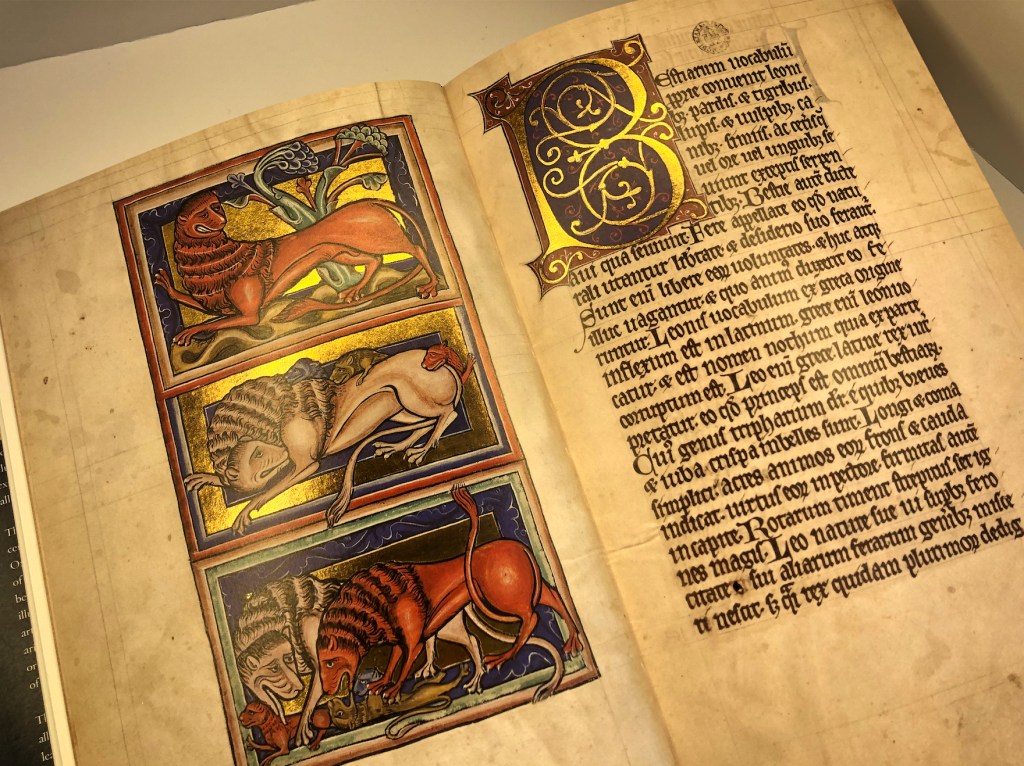 Bestiarum uocabulū
ꝓprie conuenit leoni
bꝫ, pardis, & tigribus,
lupis, & uulpibꝫ, ca
nibꝫ, simiis, ac ceteris q̄
uel ore uel unguibꝫ se
uiunt exceptis serpen
tibꝫ. Bestie autē dicte
a ui qua seuiunt. Fere appellate eo qđ natu
rali utantur libertate & desiderio suo ferant̃
Sunt enī libere eoꝝ uoluntates, & huc atqꝫ
illuc uagantur, & quo animꝰ duxerit eo fe
runtur. Leonis uocabulum ex greca origine
inflexum est in latinum, grece enī leon uo
catur & est nomen nothum quia ex parte
corruptum est. Leo enī grece latine rex int̃
pretatur, eo qđ princeps est omniū bestiaꝝ
Cui genus tripharium dr̃, e quibꝫ breues
& iuba crispa inbelles sunt. Longi & coma
simplici acres animos eoꝝ frons & cauda
indicat, uirtus eoꝝ in pectore firmitas autē
in capite. Rotarum timent strepitus, set ig
nes magis. Leo nature sue ui supbꝫ fero
citate sui aliarum ferarum genibꝫ misce
ri nescit, sꝫ rex quidam plurimoꝝ dedig